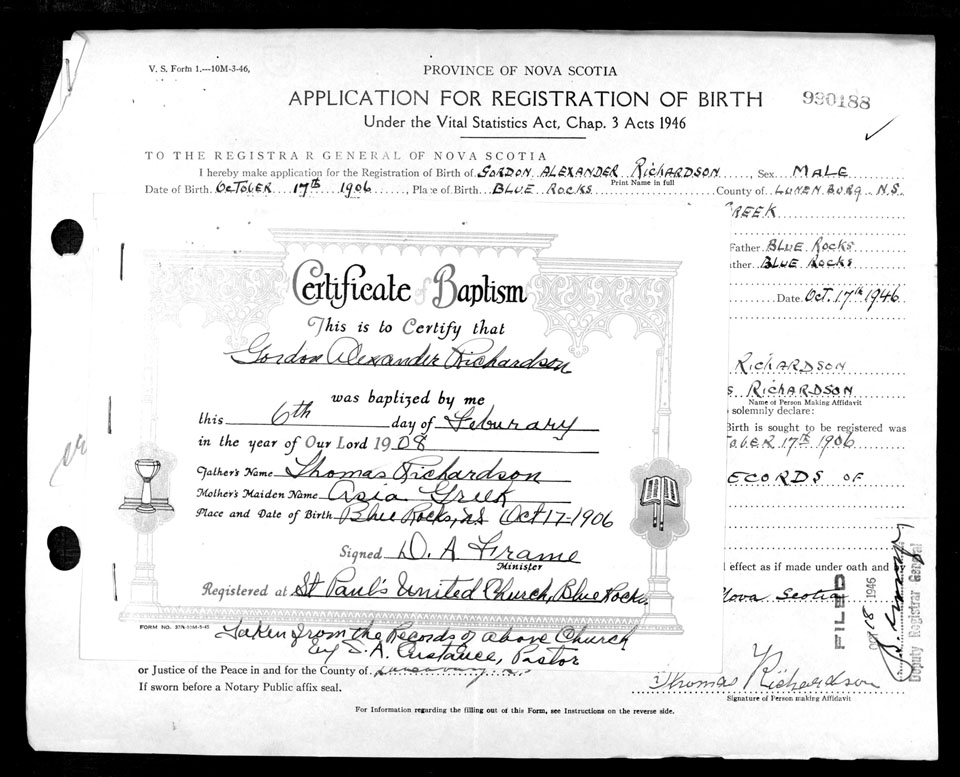 V. S. Form 1.—10M-3-46,
PROVINCE OF NOVA SCOTIA
APPLICATION FOR REGISTRATION OF BIRTH
990188
Under the Vital Statistics Act, Chap. 3 Acts 1946
TO THE REGISTRAR GENERAL OF NOVA SCOTIA
I hereby make application for the Registration of Birth of GORDON ALEXANDER RICHARDSON, Sex MALE
Print Name in full
Date of Birth OCTOBER 17th 1906, Place of Birth BLUE ROCKS County of LUNENBURG N.S.
CREEK
Father BLUE ROCKS
ther BLUE ROCKS
Date Oct. 17th 1946
Certificate of Baptism
This is to Certify that
Gordon Alexander Richardson
was baptized by me
this 6th day of Feburary
in the year of Our Lord 1908
Father's Name Thomas Richardson
Mother's Maiden Name Asia Greek
Place and Date of Birth Blue Rocks, NS Oct 17-1906
Signed D. A. Frame
Minister
Registered at St Paul's United Church, Blue Rocks.
FORM NO. 37R-10M-5-45
Taken from the Records of above Church
by S. A. Custance, Pastor
RICHARDSON
S RICHARDSON
Name of Person Making Affidavit
solemnly declare:
Birth is sought to be registered was
TOBER 17th 1906
ECORDS OF
effect as if made under oath and
Nova Scotia
FILED
OCT 18 1946
Deputy Registrar General
or Justice of the Peace in and for the County of
If sworn before a Notary Public affix seal.
Thomas Richardson
Signature of Person making Affidavit
For Information regarding the filling out of this Form, see Instructions on the reverse side.